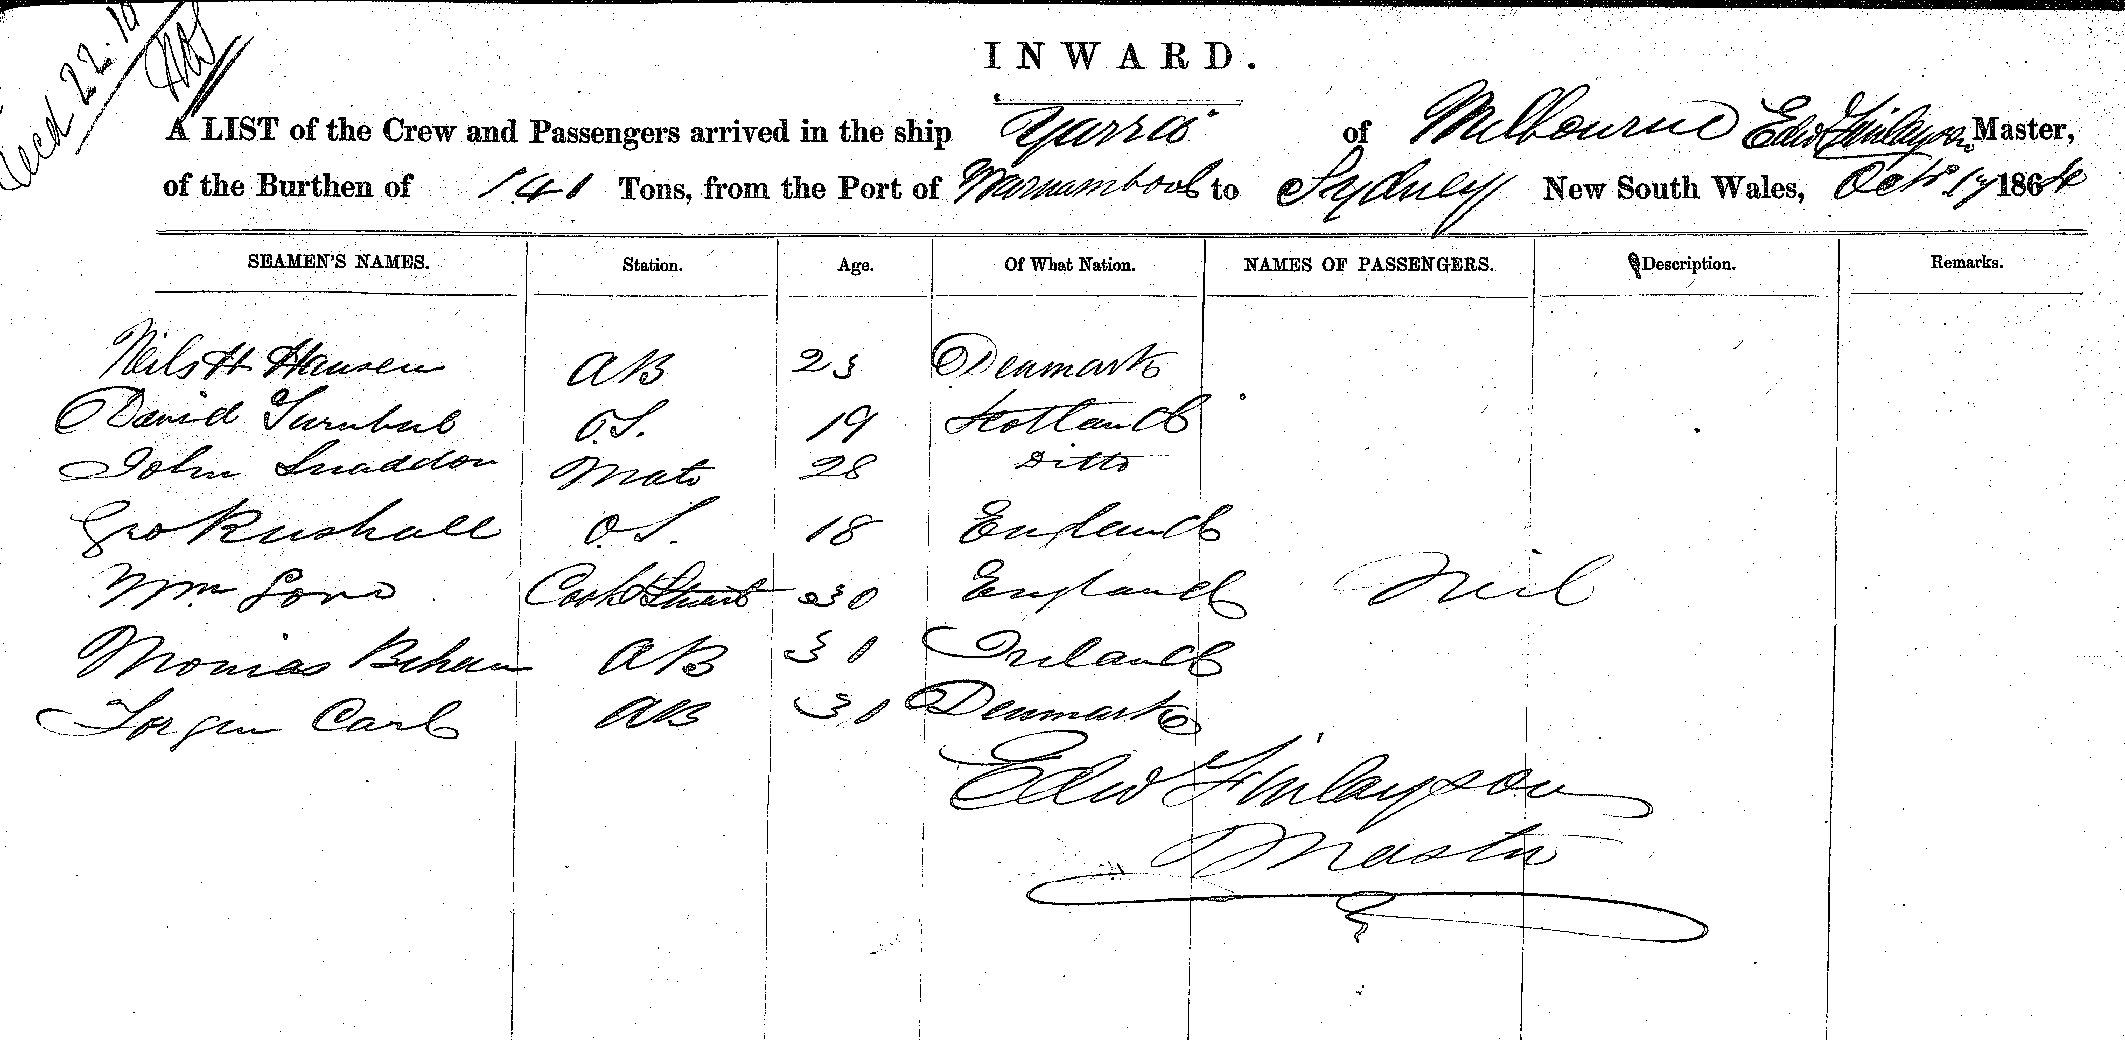 Recd 22.10
INWARD.
A LIST of the Crew and Passengers arrived in the ship Yarra of Melbourne Edw Finlayson Master,
of the Burthen of 141 Tons, from the Port of Warnambool to Sydney New South Wales, Octr 17 1864
SEAMEN'S NAMES. Station. Age. Of What Nation. NAMES OF PASSENGERS. Description. Remarks.
Neils H Hansen AB 23 Denmark
David Turnbul O.S. 19 Scotland
John Snaddon Mate 28 Ditto
Geo Rushall O.S. 18 England
Wm Cook & 30 England Neil
Thomas Behan AB 31 Ireland
Jorgen Carl AB 31 Denmark
Edw Finlayson
Master